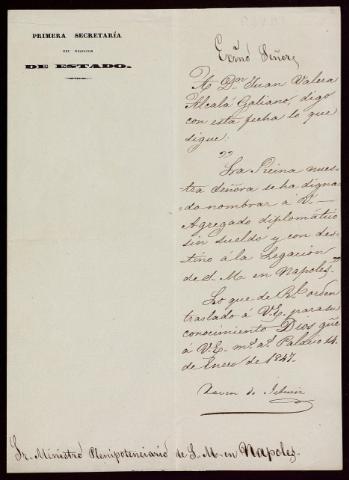 PRIMERA SECRETARÍA
DEL DESPACHO
DE ESTADO.
Exmo Señor,
A Dn. Juan Valera
Alcalá Galiano, digo
con esta fecha lo que
sigue.
"La Reina nues-
tra Señora se ha digna-
do nombrar á V. —
Agregado diplomático
sin sueldo y con des-
tino á la Legacion
de S. M. en Napoles."
Lo que de Rl. orden
traslado á V. E. para su
conocimiento - Dios gue.
á V. E. ms. as. Palacio 14
de Enero de 1847.
Sr. Ministro Plenipotenciario de S. M. en Napoles.